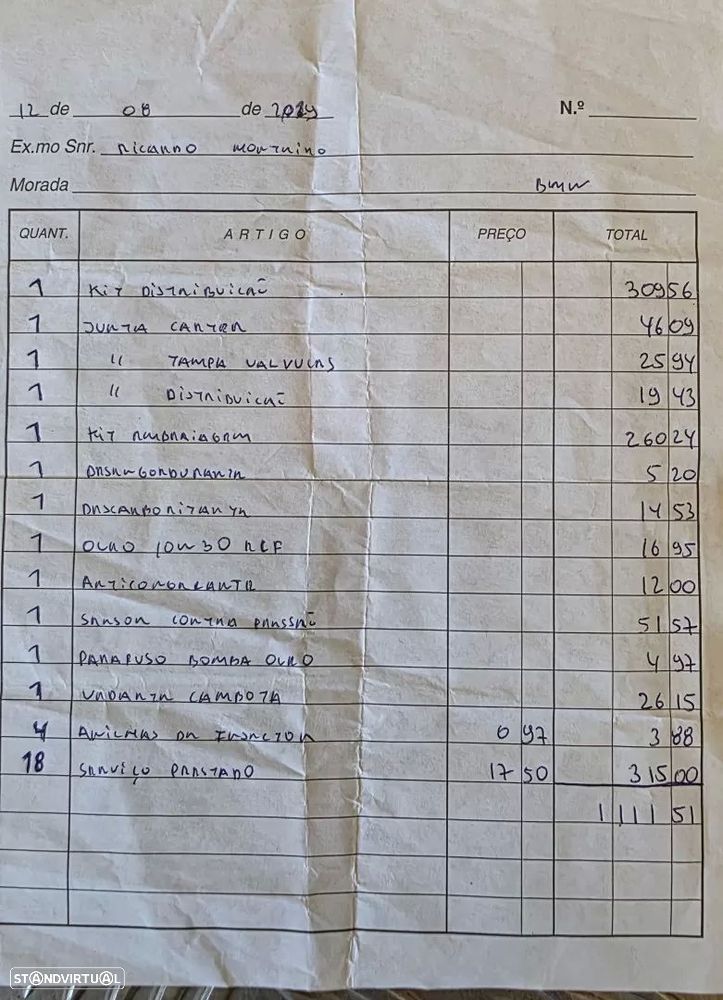 12 de 08 de 2019 N.º
Ex.mo Snr. RICARDO MOURINHO
Morada BMW
QUANT. ARTIGO PREÇO TOTAL
1 KIT DISTRIBUICAÕ 309 56
1 JUNTA CARTER 46 09
1 " TAMPA VALVULAS 25 94
1 " DISTRIBUICAÕ 19 43
1 KIT EMBRAIAGEM 260 24
1 DESENGORDURANTE 5 20
1 DESCARBONIZANTE 14 53
1 OLEO 10W30 16 95
1 ANTICONGELANTE 12 00
1 SENSOR CONTRA PRESSAÕ 51 57
1 PARAFUSO BOMBA OLEO 4 97
1 VEDANTE CAMBOTA 26 15
4 ANILHAS DE INJECTOR 0 97 3 88
18 SERVIÇO PRESTADO 17 50 315 00
1111 51
STANDVIRTUAL